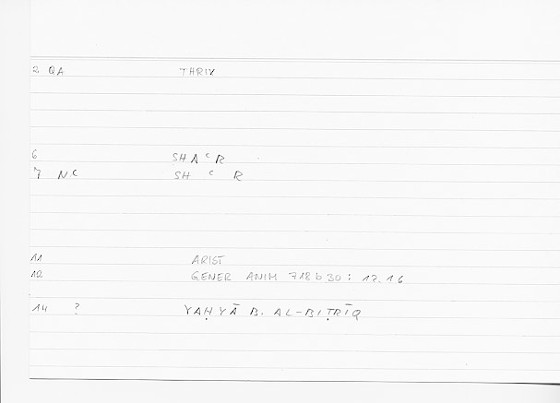 2 QA THRIX
6 SHAᶜR
7 Nᶜ SH ᶜ R
11 ARIST
12 GENER ANIM 718b30 : 17.16
14 ? YAḤYĀ B. AL-BIṬRĪQ